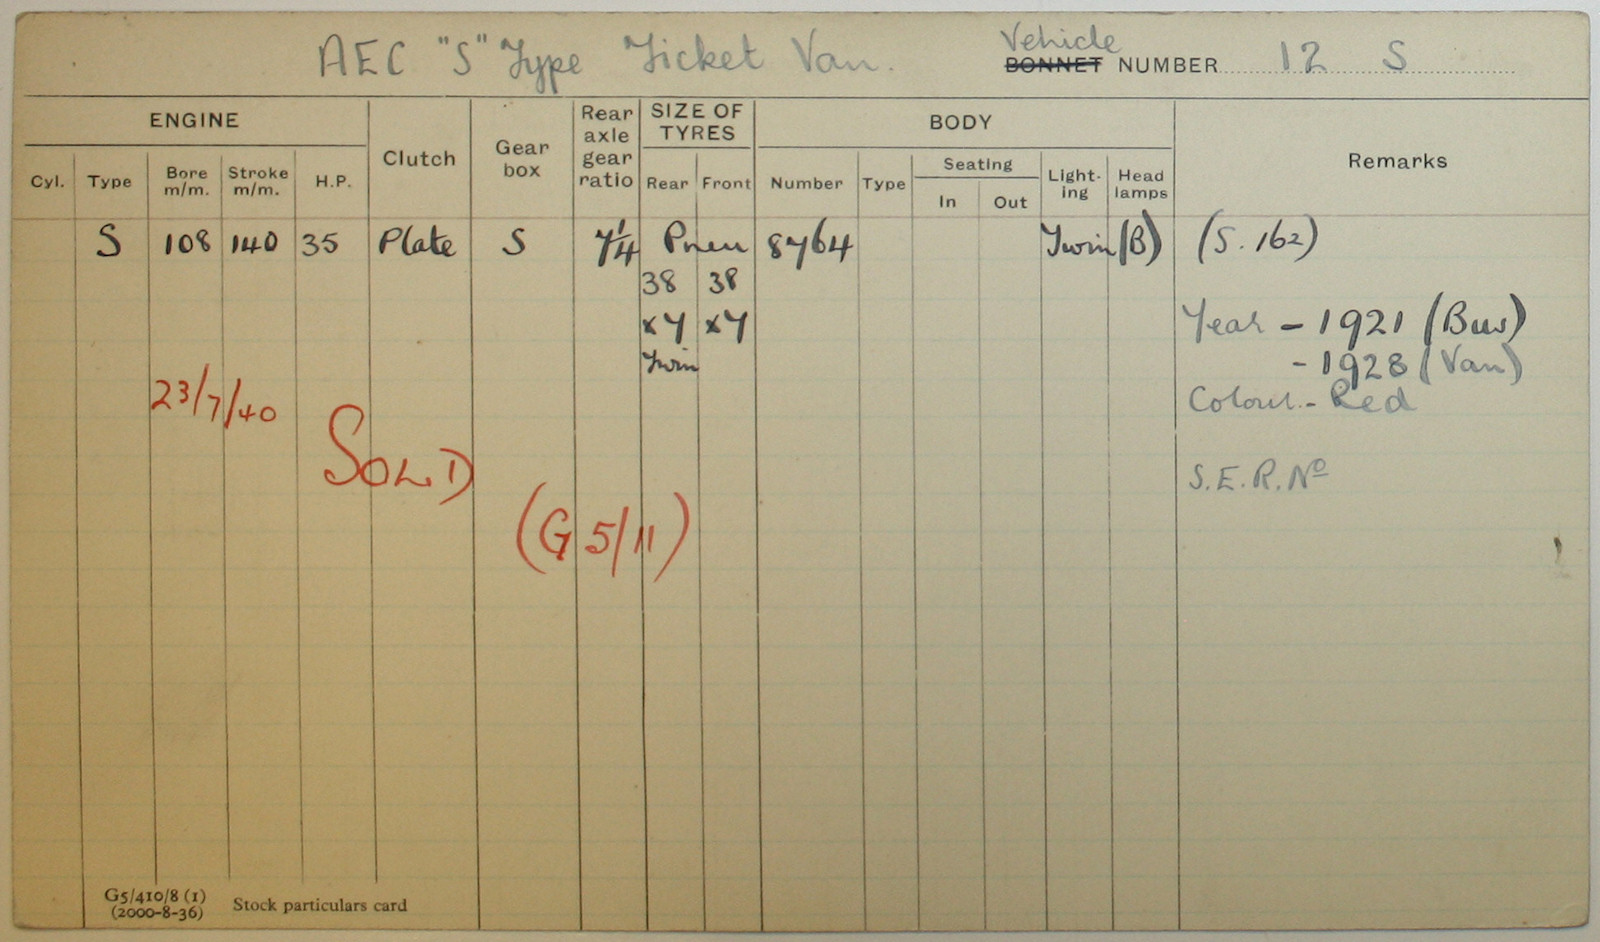 AEC "S" Type Ticket Van. Vehicle
BONNET NUMBER 12 S
ENGINE Clutch Gear box Rear axle gear ratio SIZE OF TYRES BODY Remarks
Cyl. Type Bore m/m. Stroke m/m. H.P. Rear Front Number Type Seating In Out Light-ing Head lamps
S 108 140 35 Plate S 7¼ Pneu 8764 Twin (B) (S.162)
38 38
x7 x7 Year - 1921 (Bus)
Twin - 1928 (Van)
23/7/40 Colour - Red
SOLD S.E.R. Nº
(G 5/11)
G5/410/8 (1)
(2000-8-36) Stock particulars card